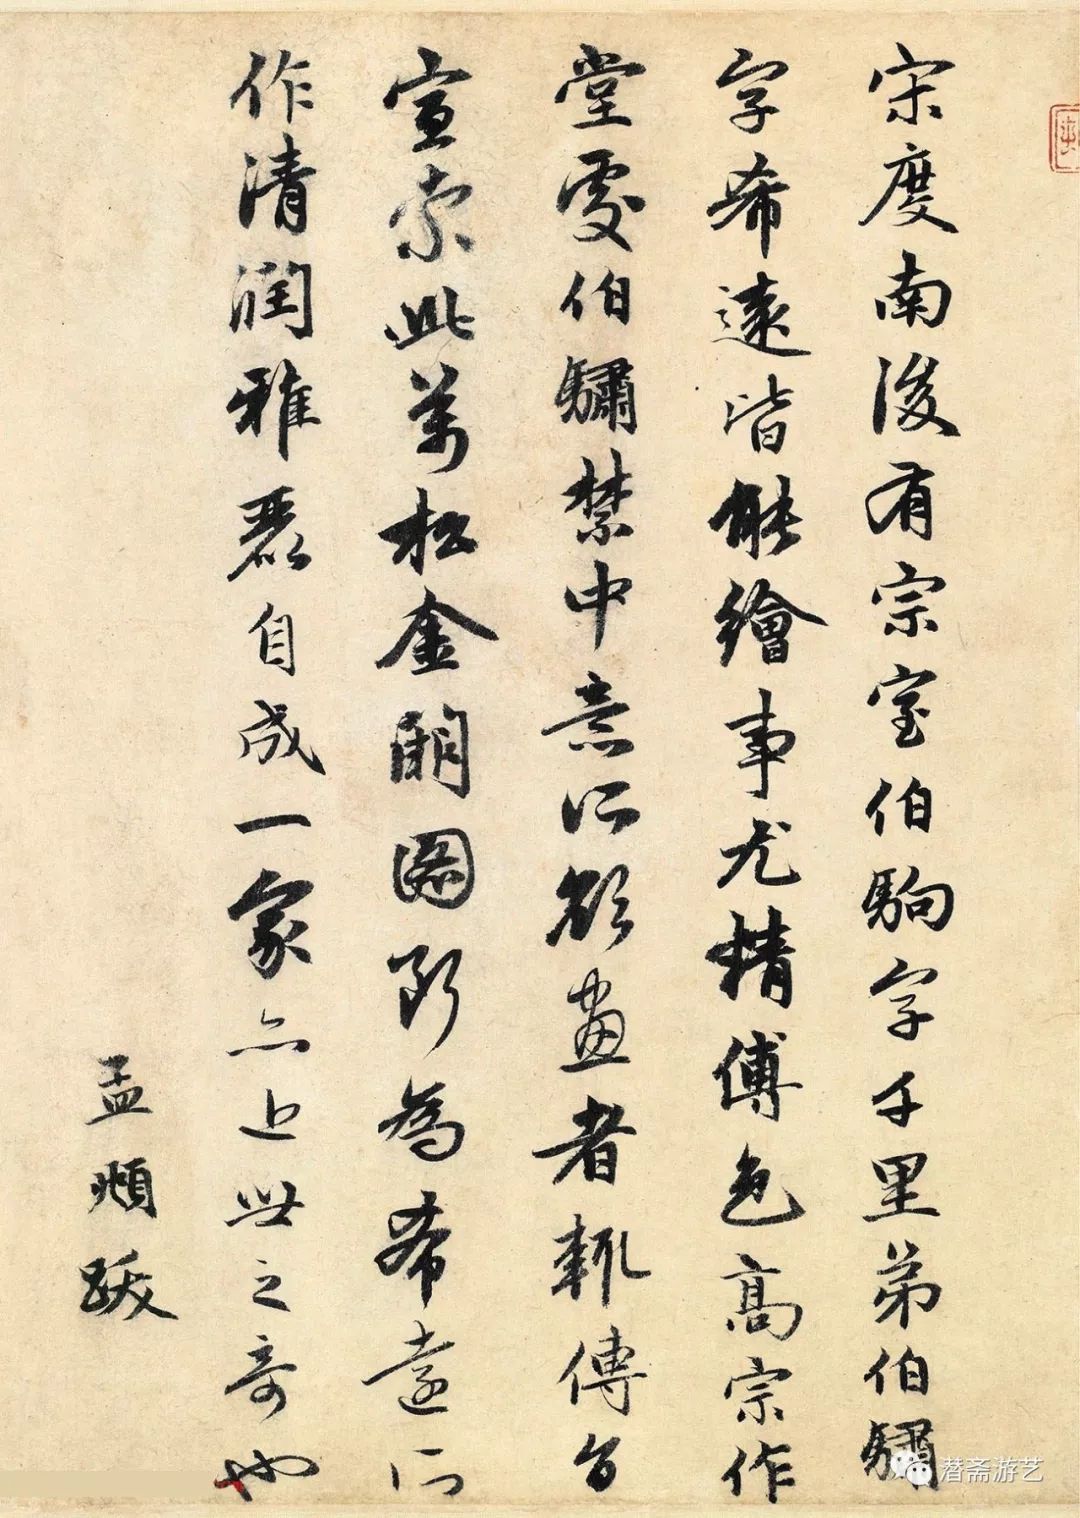 宋度南後有宗室伯駒字千里弟伯驌
字希遠皆能繪事尤精傅色高宗作
堂處伯驌禁中意所欲畫者輒傳旨
宣索此萬松金闕圖斷為希遠所
作清潤雅麗自成一家亦近世之奇也
孟頫跋
潜斋游艺